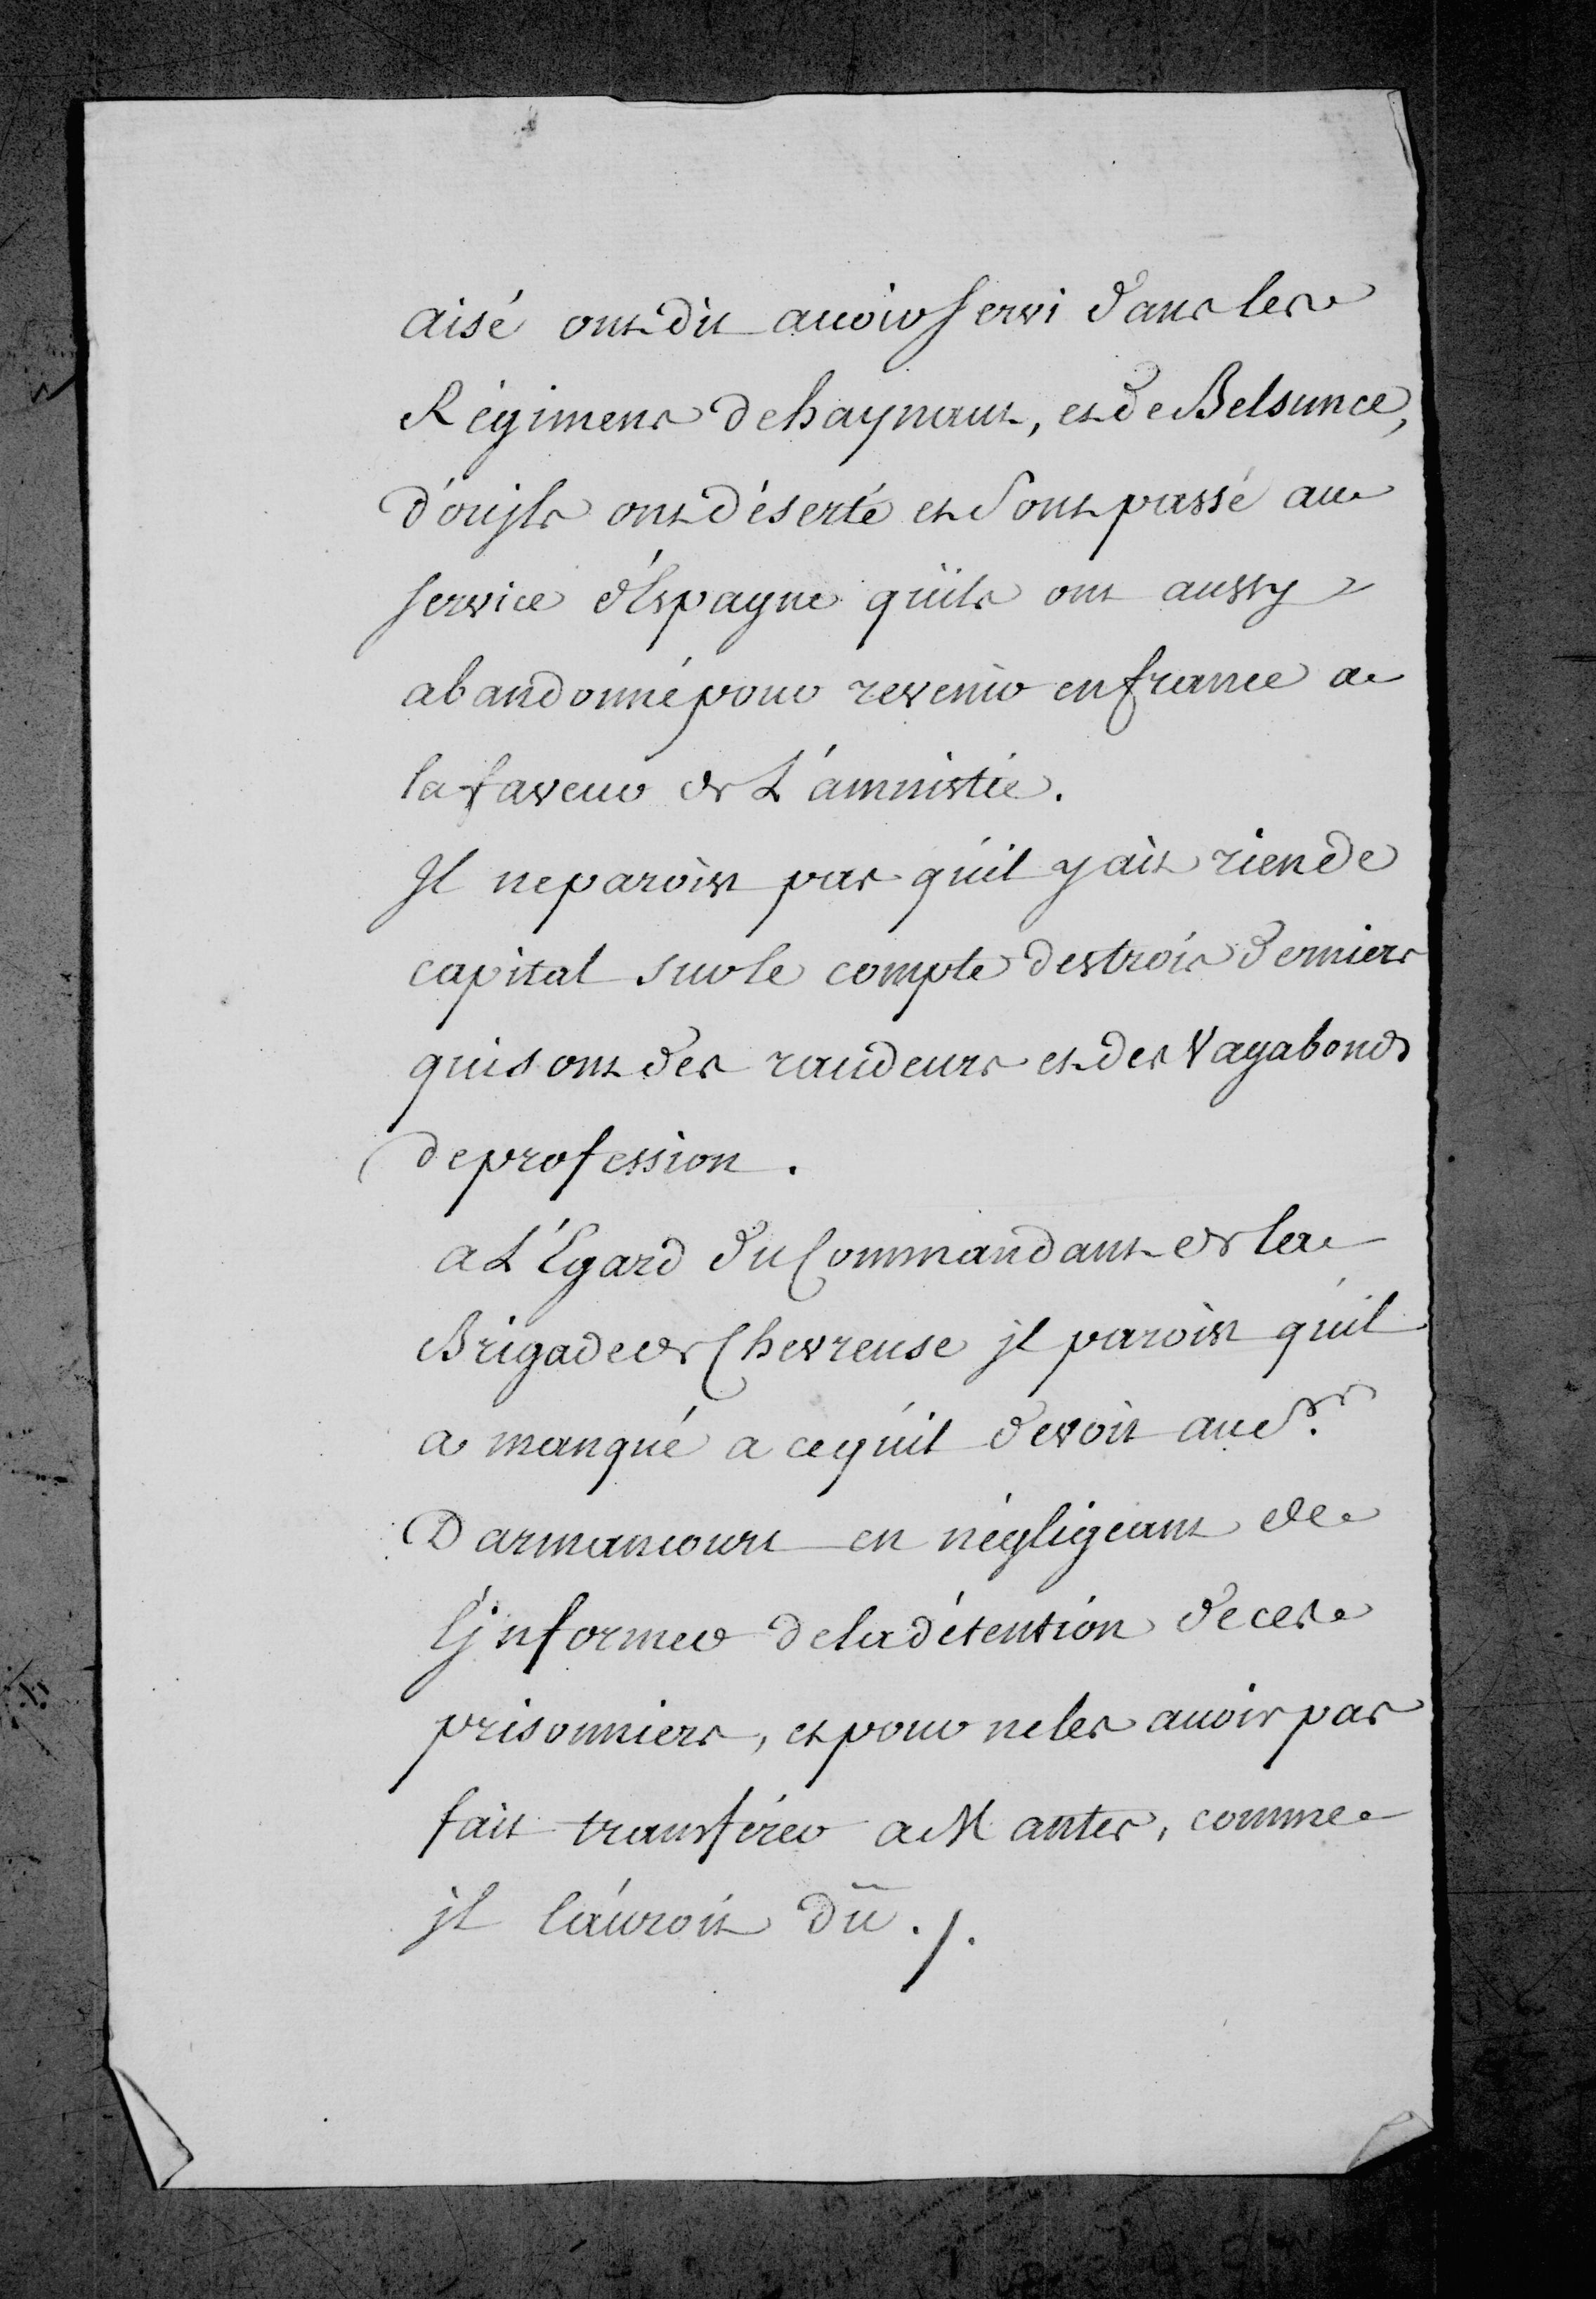 aisé ont dit avoir servi dans les
Régimens de haynaut, et de Belsunce,
d'oujls ont déserté et sont passé au
service d'Espagne qu'ils ont aussy
abandonné pour revenir en france a
la faveur de L'amnistie.
Il ne paroist pas qu'il y ait rien de
capital sur le compte des trois derniers
qui sont des raudeurs et des Vagabonds
de profession.
a L'Egard du Commandant de la
Brigade de Chevreuse jl paroist qu'il
a manqué a ce qu'il devoit au Sr.
Darmancourt en négligeant de
l'jnformer de la détention de ces
prisonniers, et pour ne les avoir pas
fait transférer a Mantes, comme
jl l'auroit dû ./.